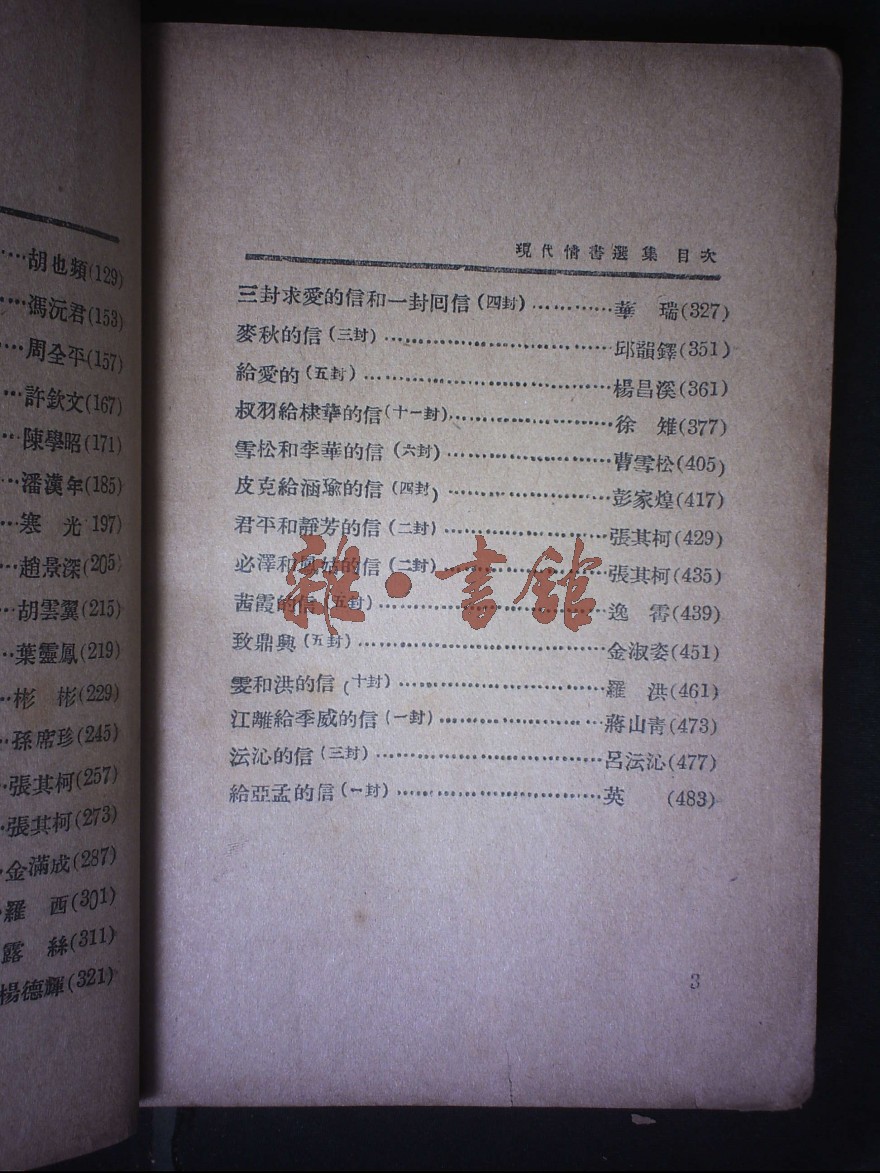 …胡也頻(129)
…馮沅君(153)
…周全平(157)
…許欽文(167)
…陳學昭(171)
…潘漢年(185)
…寒 光 197)
…趙景深(205)
…胡雲翼(215)
…葉靈鳳(219)
…彬 彬(229)
…孫席珍(245)
…張其柯(257)
…張其柯(273)
…金滿成(287)
羅 西(301)
露 絲(311)
楊德輝(321)
現代情書選集 目次
三封求愛的信和一封回信(四封)…………華 瑞(327)
麥秋的信(三封)…………………………邱韻鐸(351)
給愛的(五封)……………………………楊昌溪(361)
叔羽給棣華的信(十一封)…………………徐 雉(377)
雪松和李華的信(六封)…………………曹雪松(405)
皮克給涵瑜的信(四封)…………………彭家煌(417)
君平和靜芳的信(二封)…………………張其柯(429)
必澤和鳳姑的信(二封)…………………張其柯(435)
茜霞的信(五封)…………………………逸 霄(439)
致鼎興(五封)……………………………金淑姿(451)
雯和洪的信(十封)………………………羅 洪(461)
江離給季威的信(一封)…………………蔣山青(473)
沄沁的信(三封)…………………………呂沄沁(477)
給亞孟的信(一封)………………………英 (483)
3
雜·書館